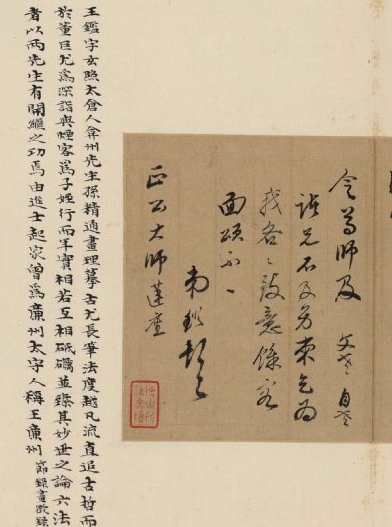 令尊師及
諸兄不及另柬乞為
我各各致意餘容
面頌不一
鑑頓首
正公大師蓮座
王鑑字玄照太倉人弇州先生孫精通畫理摹古尤長筆法度越凡流直追古哲而
於董巨尤為深詣與煙客為子姪行而年實相若互相砥礪並臻其妙世之論六法
者以兩先生有開繼之功焉由進士起家曾為廉州太守人稱王廉州 節錄畫徵錄